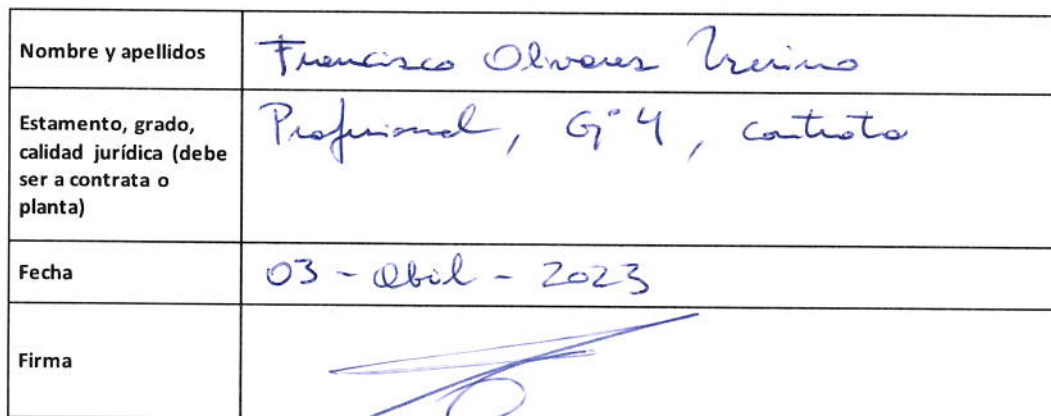 Nombre y apellidos
Francisco Olivares
Estamento, grado,
calidad jurídica (debe
ser a contrata o
planta)
Profesional, G° 4, contrata
Fecha
03 - Abril - 2023
Firma